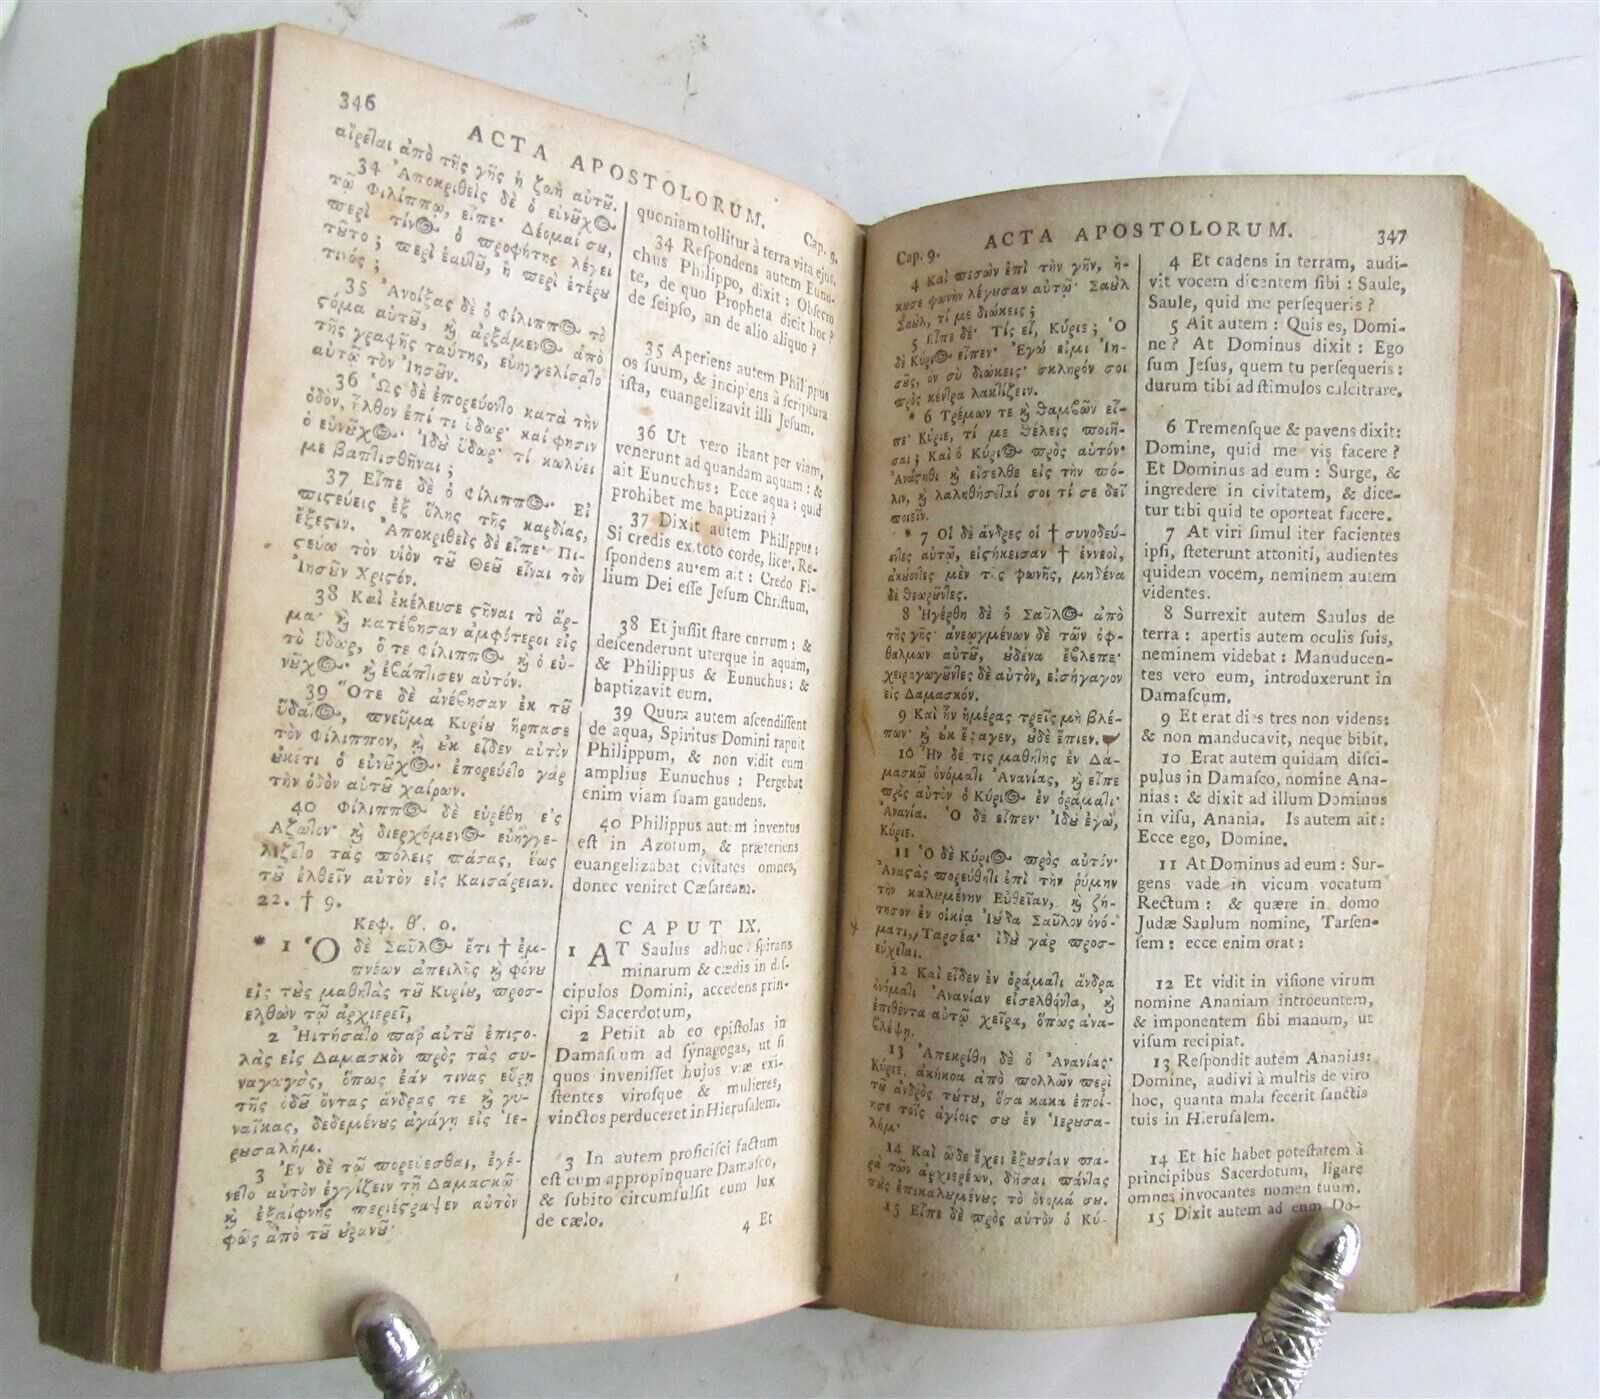 346
ACTA APOSTOLORUM.
Cap. 9.
αἴρεται ἀπὸ τῆς γῆς ἡ ζωὴ αὐτȣ.
34 Ἀποκριθεὶς δὲ ὁ εὐνȣχος
τῷ Φιλίππῳ, εἶπε· Δέομαί σȣ,
περὶ τίνος ὁ προφήτης λέγει
τȣτο; περὶ ἑαυτȣ, ἢ περὶ ἑτέρȣ
τινός;
35 Ἀνοίξας δὲ ὁ Φίλιππος τὸ
ϛόμα αὑτȣ, ϗ ἀρξάμενος ἀπὸ
τῆς γραφῆς ταύτης, εὐηγγελίσατο
αὐτῷ τὸν Ἰησȣν.
36 Ὡς δὲ ἐπορεύοντο κατὰ τὴν
ὁδὸν, ἦλθον ἐπί τι ὕδωρ· καί φησιν
ὁ εὐνȣχος· Ἰδȣ ὕδωρ· τί κωλύει
με βαπτισθῆναι;
37 Εἶπε δὲ ὁ Φίλιππος· Εἰ
πιϛεύεις ἐξ ὅλης τῆς καρδίας,
ἔξεϛιν. Ἀποκριθεὶς δὲ εἶπε· Πι-
ϛεύω τὸν υἱὸν τȣ Θεȣ εἶναι τὸν
Ἰησȣν Χριϛόν.
38 Καὶ ἐκέλευσε ϛῆναι τὸ ἅρ-
μα· ϗ κατέβησαν ἀμφότεροι εἰς
τὸ ὕδωρ, ὅ τε Φίλιππος ϗ ὁ εὐ-
νȣχος· ϗ ἐβάπτισεν αὐτόν.
39 Ὅτε δὲ ἀνέβησαν ἐκ τȣ
ὕδατος, πνεῦμα Κυρίȣ ἥρπασε
τὸν Φίλιππον, ϗ ȣκ εἶδεν αὐτὸν
ȣκέτι ὁ εὐνȣχος· ἐπορεύετο γὰρ
τὴν ὁδὸν αὑτȣ χαίρων.
40 Φίλιππος δὲ εὑρέθη εἰς
Ἄζωτον· ϗ διερχόμενος εὐηγγε-
λίζετο τὰς πόλεις πάσας, ἕως
τȣ ἐλθεῖν αὐτὸν εἰς Καισάρειαν.
22. † 9.
Κεφ. θ'. 9.
* 1 Ὁ δὲ Σαῦλος ἔτι † ἐμ-
πνέων ἀπειλῆς ϗ φόνȣ
εἰς τȣς μαθητὰς τȣ Κυρίȣ, προσ-
ελθὼν τῷ ἀρχιερεῖ,
2 ᾘτήσατο παρ' αὐτȣ ἐπιϛο-
λὰς εἰς Δαμασκὸν πρὸς τὰς συ-
ναγωγὰς, ὅπως ἐάν τινας εὕρῃ
τῆς ὁδȣ ὄντας ἄνδρας τε ϗ γυ-
ναῖκας, δεδεμένȣς ἀγάγῃ εἰς Ἱε-
ρȣσαλήμ.
3 Ἐν δὲ τῷ πορεύεσθαι, ἐγέ-
νετο αὐτὸν ἐγγίζειν τῇ Δαμασκῷ
ϗ ἐξαίφνης περιήϛραψεν αὐτὸν
φῶς ἀπὸ τȣ ȣρανȣ·
quoniam tollitur à terra vita ejus.
34 Reſpondens autem Eunu-
chus Philippo, dixit: Obſecro
te, de quo Propheta dicit hoc?
de ſeipſo, an de alio aliquo?
35 Aperiens autem Philippus
os ſuum, & incipiens à ſcriptura
iſta, euangelizavit illi Jeſum.
36 Ut vero ibant per viam,
venerunt ad quandam aquam: &
ait Eunuchus: Ecce aqua: quid
prohibet me baptizari?
37 Dixit autem Philippus:
Si credis ex toto corde, licet. Re-
ſpondens autem ait: Credo Fi-
lium Dei eſſe Jeſum Chriſtum,
38 Et juſſit ſtare currum: &
deſcenderunt uterque in aquam,
& Philippus & Eunuchus: &
baptizavit eum.
39 Quum autem aſcendiſſent
de aqua, Spiritus Domini rapuit
Philippum, & non vidit eum
amplius Eunuchus: Pergebat
enim viam ſuam gaudens.
40 Philippus autem inventus
eſt in Azotum, & præteriens
euangelizabat civitates omnes,
donec veniret Cæſaream.
CAPUT IX.
1 AT Saulus adhuc ſpirans
minarum & cædis in diſ-
cipulos Domini, accedens prin-
cipi Sacerdotum,
2 Petiit ab eo epiſtolas in
Damaſcum ad ſynagogas, ut ſi
quos inveniſſet hujus viæ exi-
ſtentes viroſque & mulieres,
vinctos perduceret in Hieruſalem.
3 In autem proficiſci factum
eſt eum appropinquare Damaſco,
& ſubito circumfulſit eum lux
de cælo.
4 Et
Cap. 9.
ACTA APOSTOLORUM.
347
4 Καὶ πεσὼν ἐπὶ τὴν γῆν, ἤ-
κȣσε φωνὴν λέγȣσαν αὐτῷ· Σαȣλ
Σαȣλ, τί με διώκεις;
5 Εἶπε δέ· Τίς εἶ, Κύριε; Ὁ
δὲ Κύριος εἶπεν· Ἐγώ εἰμι Ἰη-
σȣς, ὃν σὺ διώκεις· σκληρόν σοι
πρὸς κέντρα λακτίζειν.
* 6 Τρέμων τε ϗ θαμβῶν εἶ-
πε· Κύριε, τί με θέλεις ποιῆ-
σαι; Καὶ ὁ Κύριος πρὸς αὐτόν·
Ἀνάϛηθι ϗ εἴσελθε εἰς τὴν πό-
λιν, ϗ λαληθήσεταί σοι τί σε δεῖ
ποιεῖν.
* 7 Οἱ δὲ ἄνδρες οἱ † συνοδεύ-
οντες αὐτῷ, εἱϛήκεισαν † ἐννεοὶ,
ἀκȣοντες μὲν τῆς φωνῆς, μηδένα
δὲ θεωρȣντες.
8 Ἠγέρθη δὲ ὁ Σαῦλος ἀπὸ
τῆς γῆς· ἀνεῳγμένων δὲ τῶν ὀφ-
θαλμῶν αὐτȣ, ȣδένα ἔβλεπε·
χειραγωγȣντες δὲ αὐτὸν, εἰσήγαγον
εἰς Δαμασκόν.
9 Καὶ ἦν ἡμέρας τρεῖς μὴ βλέ-
πων· ϗ ȣκ ἔφαγεν, ȣδὲ ἔπιεν.
10 Ἦν δέ τις μαθητὴς ἐν Δα-
μασκῷ ὀνόματι Ἀνανίας, ϗ εἶπε
πρὸς αὐτὸν ὁ Κύριος ἐν ὁράματι·
Ἀνανία. Ὁ δὲ εἶπεν· Ἰδȣ ἐγὼ,
Κύριε.
11 Ὁ δὲ Κύριος πρὸς αὐτόν·
Ἀναϛὰς πορεύθητι ἐπὶ τὴν ῥύμην
τὴν καλȣμένην Εὐθεῖαν, ϗ ζή-
τησον ἐν οἰκίᾳ Ἰȣδα Σαῦλον ὀνό-
ματι, Ταρσέα· ἰδȣ γὰρ προσ-
εύχεται.
12 Καὶ εἶδεν ἐν ὁράματι ἄνδρα
ὀνόματι Ἀνανίαν εἰσελθόντα, ϗ
ἐπιθέντα αὐτῷ χεῖρα, ὅπως ἀνα-
βλέψῃ.
13 Ἀπεκρίθη δὲ ὁ Ἀνανίας·
Κύριε, ἀκήκοα ἀπὸ πολλῶν περὶ
τȣ ἀνδρὸς τȣτȣ, ὅσα κακὰ ἐποί-
ησε τοῖς ἁγίοις σȣ ἐν Ἱερȣσα-
λήμ·
14 Καὶ ὧδε ἔχει ἐξȣσίαν πα-
ρὰ τῶν ἀρχιερέων, δῆσαι πάντας
τȣς ἐπικαλȣμένȣς τὸ ὄνομά σȣ.
15 Εἶπε δὲ πρὸς αὐτὸν ὁ Κύ-
4 Et cadens in terram, audi-
vit vocem dicentem ſibi: Saule,
Saule, quid me perſequeris?
5 Ait autem: Quis es, Domi-
ne? At Dominus dixit: Ego
ſum Jeſus, quem tu perſequeris:
durum tibi ad ſtimulos calcitrare.
6 Tremenſque & pavens dixit:
Domine, quid me vis facere?
Et Dominus ad eum: Surge, &
ingredere in civitatem, & dice-
tur tibi quid te oporteat facere.
7 At viri ſimul iter facientes
ipſi, ſteterunt attoniti, audientes
quidem vocem, neminem autem
videntes.
8 Surrexit autem Saulus de
terra: apertis autem oculis ſuis,
neminem videbat: Manuducen-
tes vero eum, introduxerunt in
Damaſcum.
9 Et erat dies tres non videns:
& non manducavit, neque bibit.
10 Erat autem quidam diſci-
pulus in Damaſco, nomine Ana-
nias: & dixit ad illum Dominus
in viſu, Anania. Is autem ait:
Ecce ego, Domine.
11 At Dominus ad eum: Sur-
gens vade in vicum vocatum
Rectum: & quære in domo
Judæ Saulum nomine, Tarſen-
ſem: ecce enim orat:
12 Et vidit in viſione virum
nomine Ananiam introeuntem,
& imponentem ſibi manum, ut
viſum recipiat.
13 Reſpondit autem Ananias:
Domine, audivi à multis de viro
hoc, quanta mala fecerit ſanctis
tuis in Hieruſalem.
14 Et hic habet poteſtatem à
principibus Sacerdotum, ligare
omnes invocantes nomen tuum.
15 Dixit autem ad eum Do-